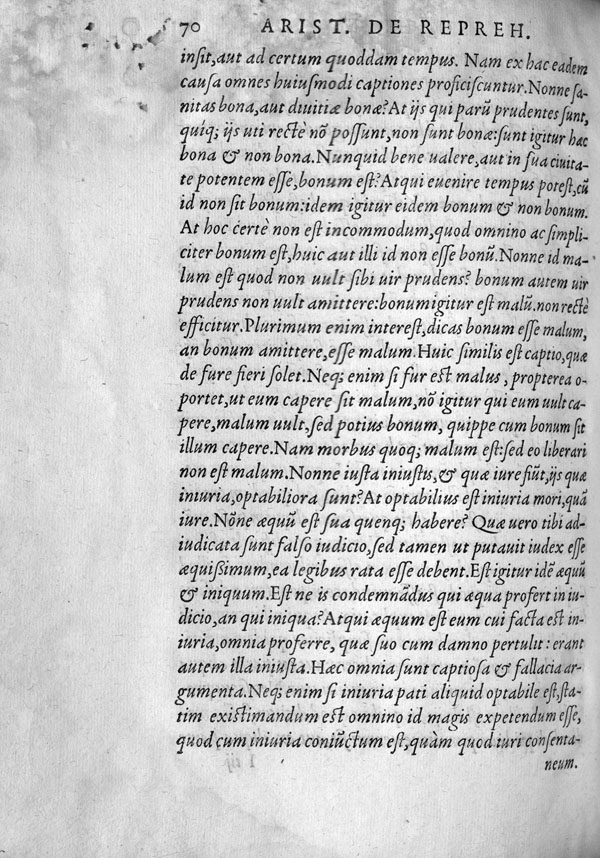 70 ARIST. DE REPREH.
insit, aut ad certum quoddam tempus. Nam ex hac eadem
causa omnes huiusmodi captiones proficiscuntur. Nonne sa-
nitas bona, aut diuitiæ bonæ? At ijs qui parũ prudentes sunt,
quíq; ijs uti rectè nõ possunt, non sunt bonæ: sunt igitur hæc
bona & non bona. Nunquid bene ualere, aut in sua ciuita-
te potentem esse, bonum est? Atqui euenire tempus potest, cũ
id non sit bonum: idem igitur eidem bonum & non bonum.
At hoc certè non est incommodum, quod omnino ac simpli-
citer bonum est, huic aut illi id non esse bonũ. Nonne id ma-
lum est quod non uult sibi uir prudens? bonum autem uir
prudens non uult amittere: bonum igitur est malũ. non rectè
efficitur. Plurimum enim interest, dicas bonum esse malum,
an bonum amittere, esse malum. Huic similis est captio, quæ
de fure fieri solet. Neq; enim si fur est malus, propterea o-
portet, ut eum capere sit malum, nõ igitur qui eum uult ca-
pere, malum uult, sed potius bonum, quippe cum bonum sit
illum capere. Nam morbus quoq; malum est: sed eo liberari
non est malum. Nonne iusta iniustis, & quæ iure fiũt, ijs quæ
iniuria, optabiliora sunt? At optabilius est iniuria mori, quã
iure. Nõne æquũ est sua quenq; habere? Quæ uero tibi ad-
iudicata sunt falso iudicio, sed tamen ut putauit iudex esse
æquissimum, ea legibus rata esse debent. Est igitur idẽ æquũ
& iniquum. Est ne is condemnãdus qui æqua profert in iu-
dicio, an qui iniqua? Atqui æquum est eum cui facta est in-
iuria, omnia proferre, quæ suo cum damno pertulit: erant
autem illa iniusta. Hæc omnia sunt captiosa & fallacia ar-
gumenta. Neq; enim si iniuria pati aliquid optabile est, sta-
tim existimandum est omnino id magis expetendum esse,
quod cum iniuria coniũctum est, quàm quod iuri consenta-
neum.